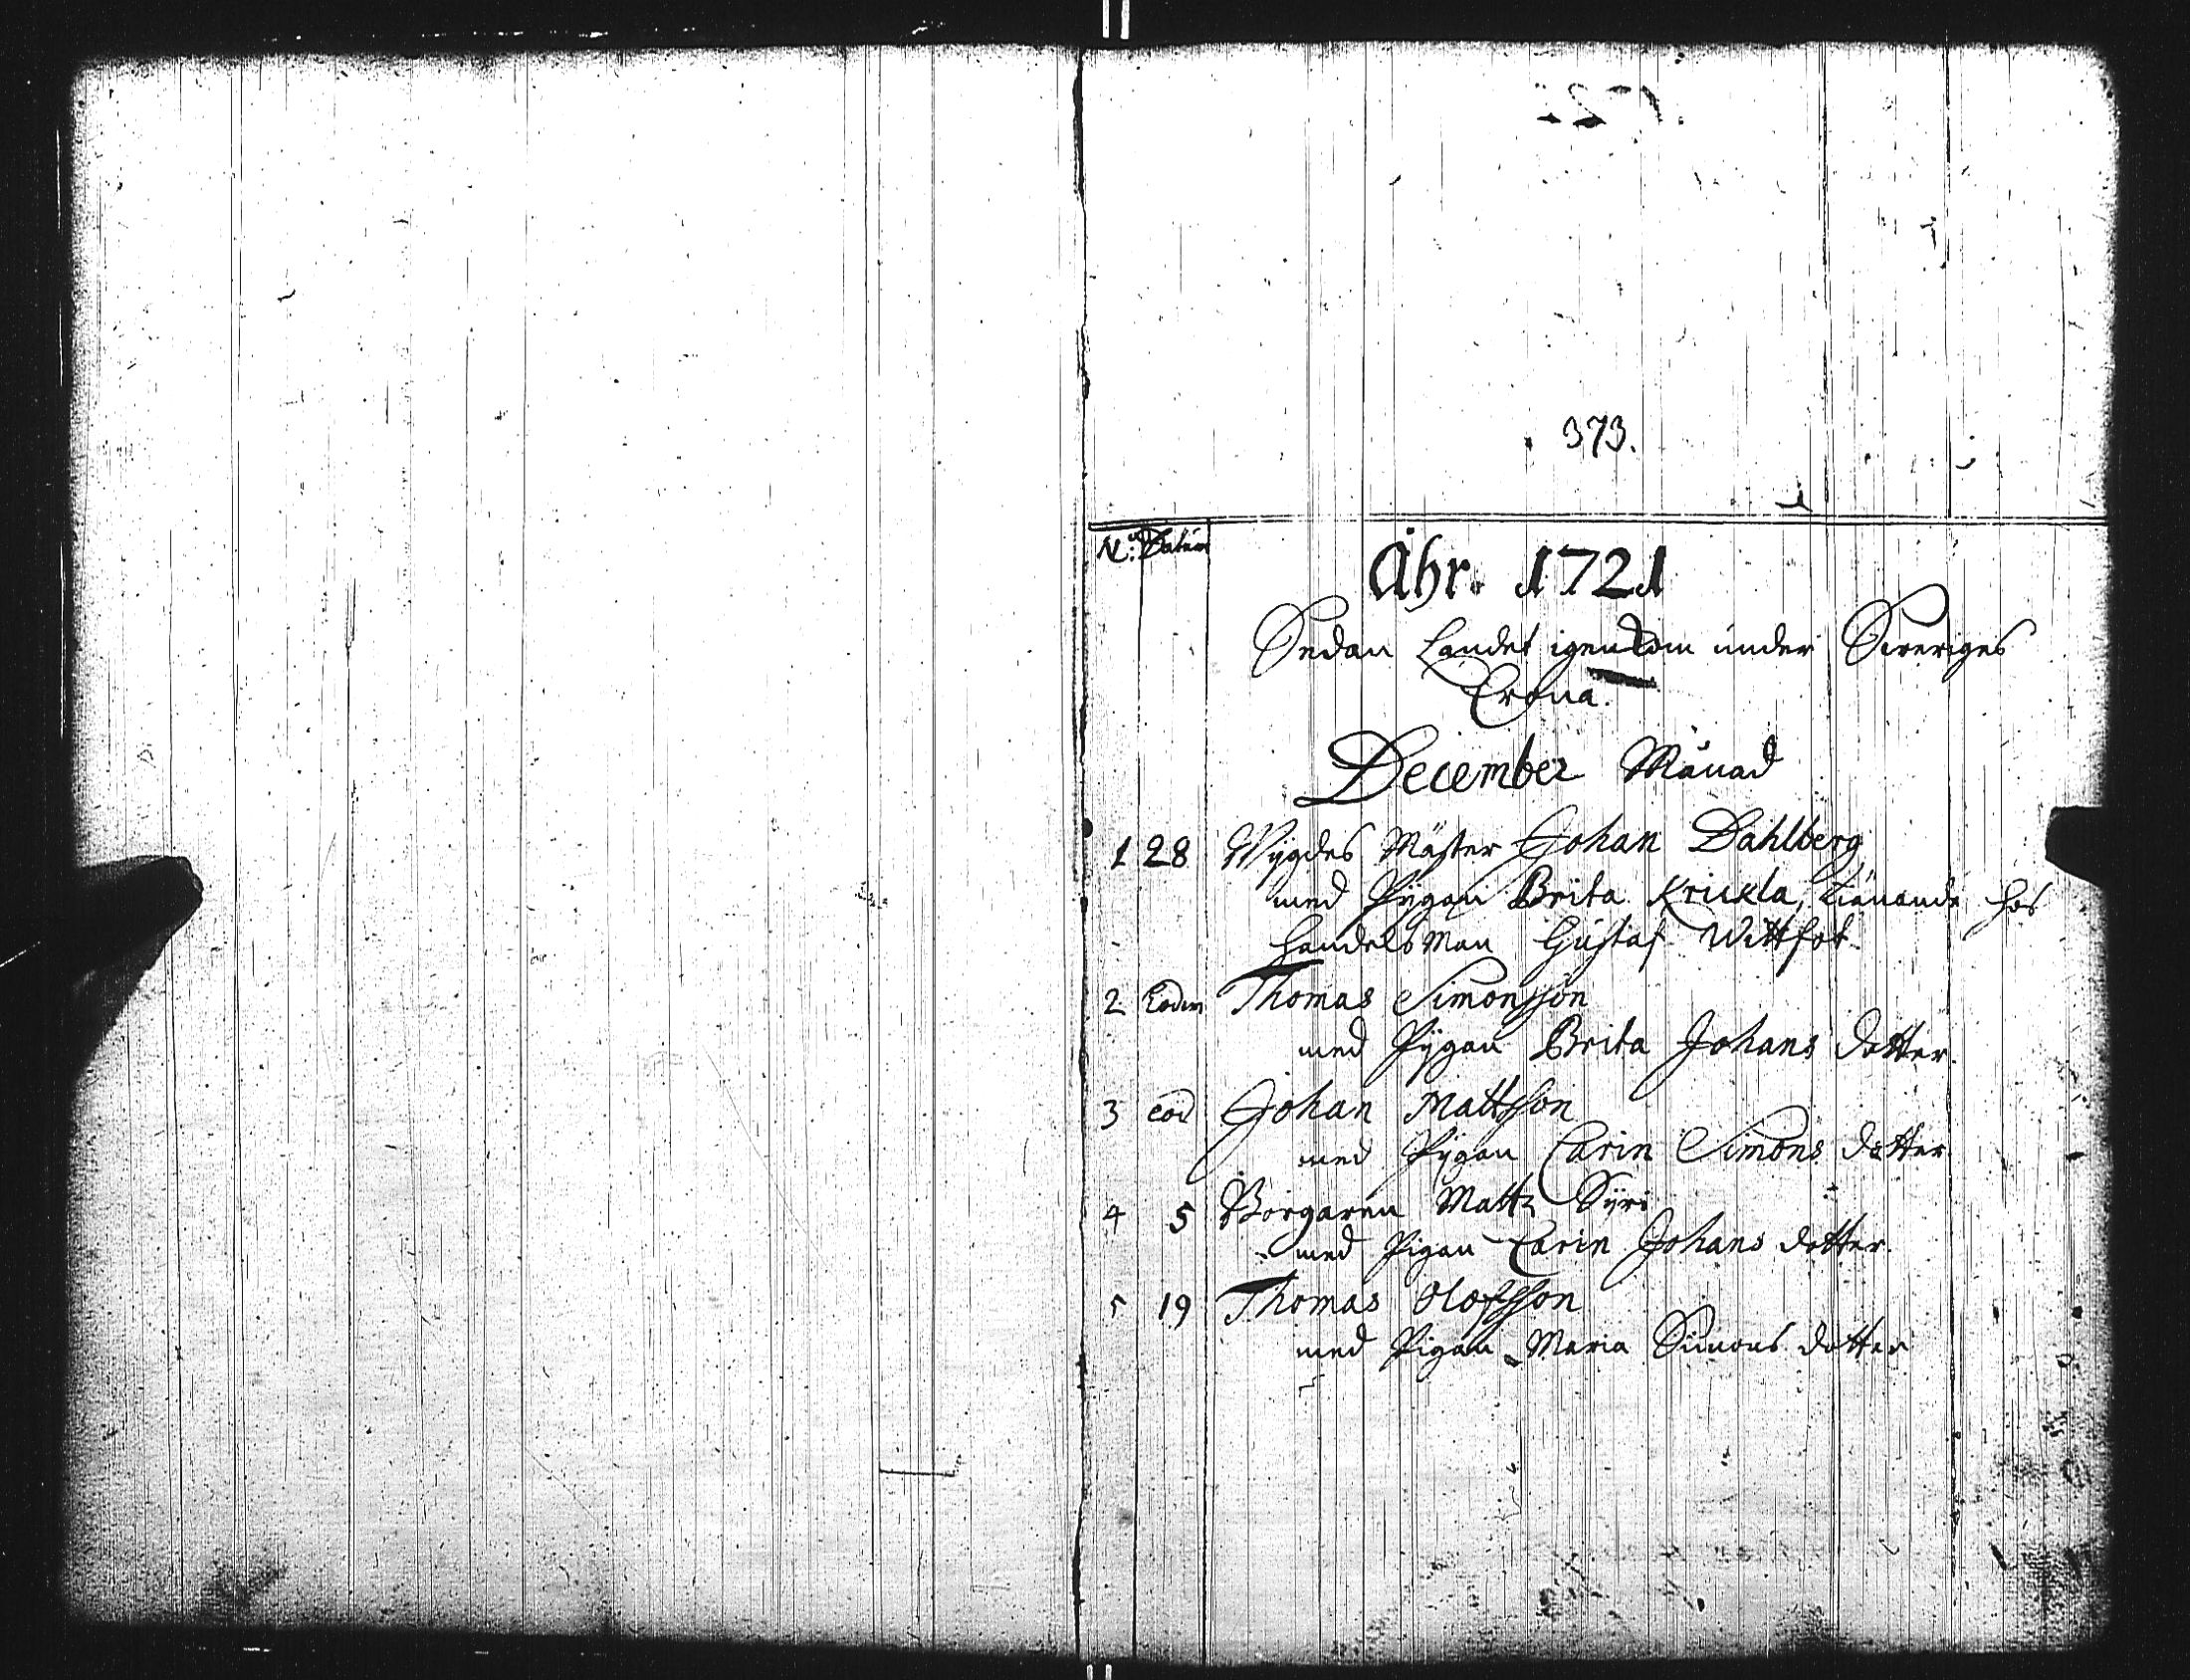 373.
N:o Datum
Åhr. 1721
Sedan Landet igenkom under Sweriges
Crona.
December Månad
1 28 Wygdes Mäster Johan Dahlberg
med Pygan Brita Krickla, tiänande hos
Handelsman Gustaf Wittfot.
2 Eodem Thomas Simonsson
med Pygan Brita Johans dotter.
3 eod Johan Mattsson
med Pygan Carin Simons dotter
4 5 Borgaren Matts Syri
med Pigan Carin Johans dotter.
5 19 Thomas Olofsson
med Pigan Maria Simons dotter